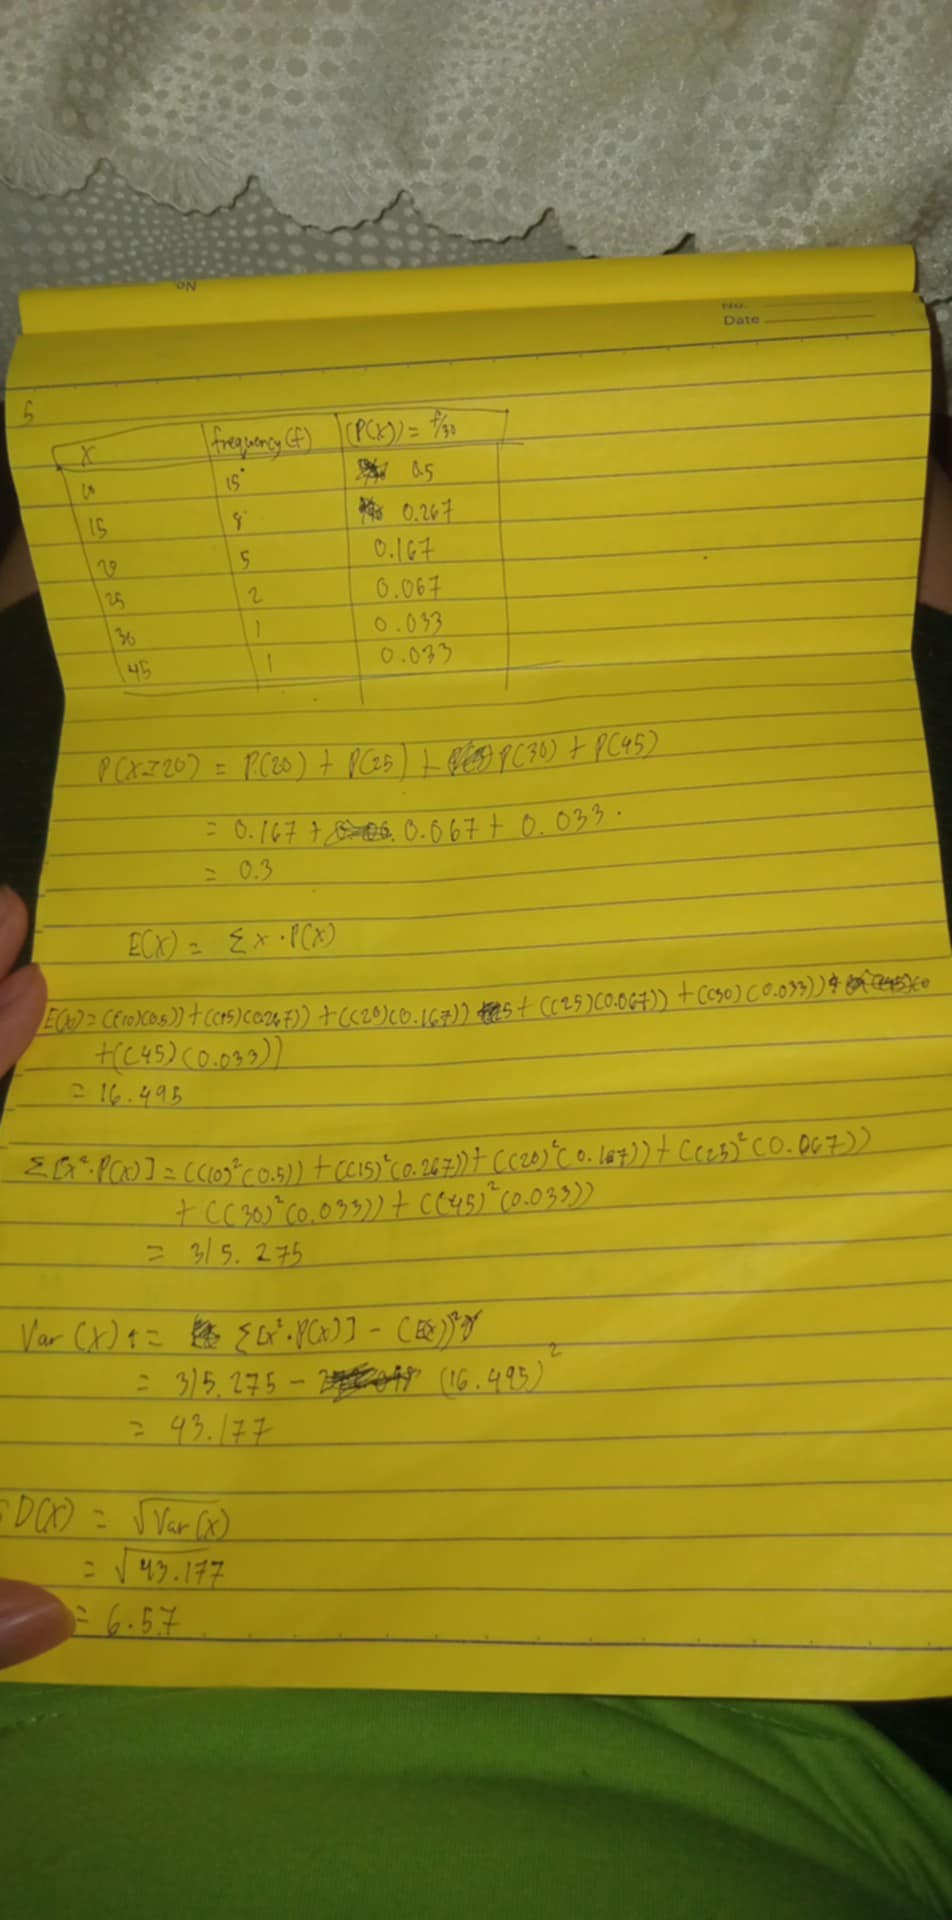 ON
No.
Date
5
X frequency (f) (P(X)) = f/30
10 15 0.5
15 8 0.267
20 5 0.167
25 2 0.067
30 1 0.033
45 1 0.033
P(X≥20) = P(20) + P(25) + P(30) + P(45)
= 0.167 + 0.067 + 0.033.
= 0.3
E(X) = Σ x · P(X)
E(X) = ((10)(0.5)) + ((15)(0.267)) + ((20)(0.167)) + ((25)(0.067)) + ((30)(0.033))
+((45)(0.033))
= 16.495
Σ[x²·P(X)] = ((10)²(0.5)) + ((15)²(0.267)) + ((20)²(0.167)) + ((25)²(0.067))
+ ((30)²(0.033)) + ((45)²(0.033))
= 315.275
Var (X) = Σ[x²·P(X)] - (E(X))²
= 315.275 - (16.495)²
= 43.177
SD(X) = √Var(X)
= √43.177
= 6.57